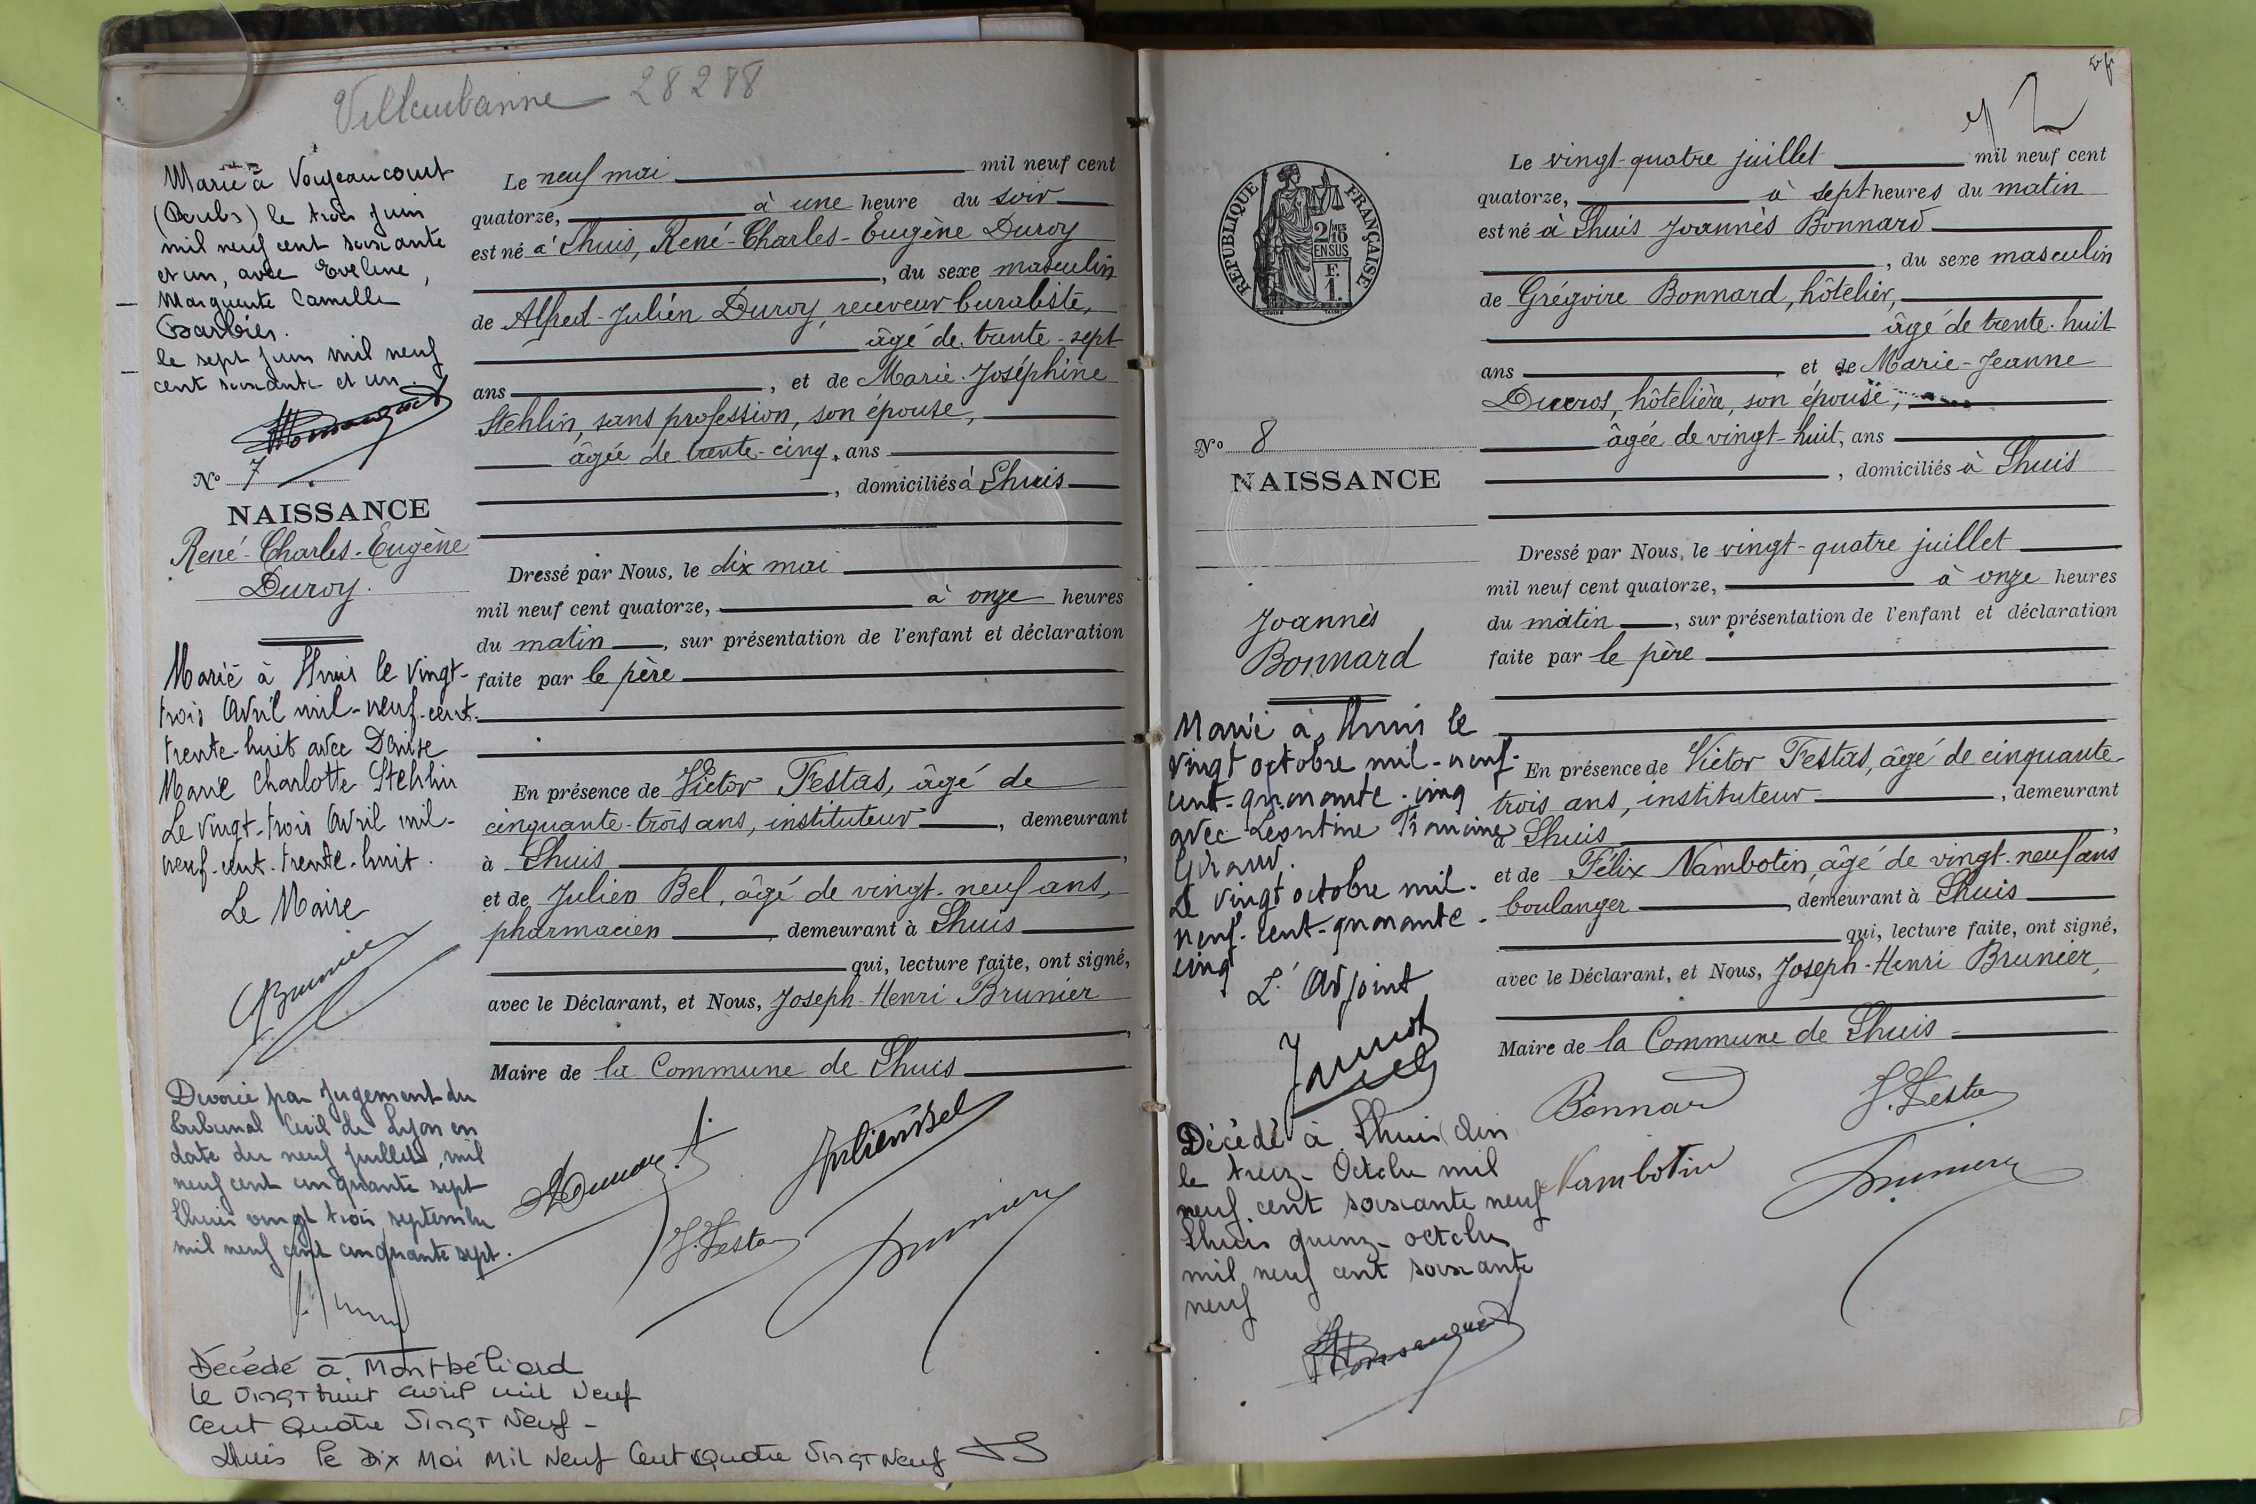 Villeurbanne 28288
Marié à Voujeaucourt
(Doubs) le trois Juin
mil neuf cent soixante
et un, avec Eveline,
Marguerite Camille
Barbier.
le sept juin mil neuf
cent soixante et un.
N° 7
NAISSANCE
René-Charles-Eugène
Duroy.
Marié à Lhuis le vingt-
trois Avril mil-neuf-cent-
trente-huit avec Denise
Marie Charlotte Stehlin
Le vingt-trois Avril mil-
neuf-cent-trente-huit.
Le Maire
Brunier
Divorcé par jugement du
tribunal Civil de Lyon en
date du neuf juillet, mil
neuf cent cinquante sept
Lhuis vingt trois septembre
mil neuf cent cinquante sept.
Décédé à Montbéliard
le vingt huit avril mil neuf
cent quatre vingt neuf -
Lhuis le dix Mai Mil Neuf Cent Quatre Vingt Neuf
Le neuf mai mil neuf cent
quatorze, à une heure du soir
est né à Lhuis, René-Charles-Eugène Duroy
, du sexe masculin
de Alfred-Julien Duroy, receveur buraliste,
âgé de trente-sept
ans , et de Marie-Joséphine
Stehlin, sans profession, son épouse,
âgée de trente-cinq, ans
, domiciliés à Lhuis
Dressé par Nous, le dix mai
mil neuf cent quatorze, à onze heures
du matin , sur présentation de l'enfant et déclaration
faite par le père
En présence de Victor Festas, âgé de
cinquante-trois ans, instituteur , demeurant
à Lhuis ,
et de Julien Bel, âgé de vingt-neuf ans,
pharmacien , demeurant à Lhuis
qui, lecture faite, ont signé,
avec le Déclarant, et Nous, Joseph-Henri Brunier
,
Maire de la Commune de Lhuis
ADuroy
Julien Bel
V. Festas
Brunier
RÉPUBLIQUE FRANÇAISE
2/10
EN SUS
F.
1.
N° 8
NAISSANCE
Joannès
Bonnard
Marié à Lhuis le
vingt octobre mil-neuf-
cent-quarante-cinq
avec Léontine Francine
Giraud.
Le vingt octobre mil-
neuf-cent-quarante-
cinq
L'Adjoint
Décédé à Lhuis (Ain)
le treize Octobre mil
neuf cent soixante neuf
Lhuis quinze octobre
mil neuf cent soixante
neuf
Le vingt-quatre juillet mil neuf cent
quatorze, à sept heures du matin
est né à Lhuis Joannès Bonnard
, du sexe masculin
de Grégoire Bonnard, hôtelier,
âgé de trente-huit
ans et de Marie-Jeanne
Ducros, hôtelière, son épouse,
âgée de vingt-huit, ans
, domiciliés à Lhuis
Dressé par Nous, le vingt-quatre juillet
mil neuf cent quatorze, à onze heures
du matin , sur présentation de l'enfant et déclaration
faite par le père
En présence de Victor Festas, âgé de cinquante-
trois ans, instituteur , demeurant
à Lhuis ,
et de Félix Nambotin, âgé de vingt-neuf ans
boulanger , demeurant à Lhuis
qui, lecture faite, ont signé,
avec le Déclarant, et Nous, Joseph-Henri Brunier,
Maire de la Commune de Lhuis
Bonnard
V. Festas
Nambotin
Brunier